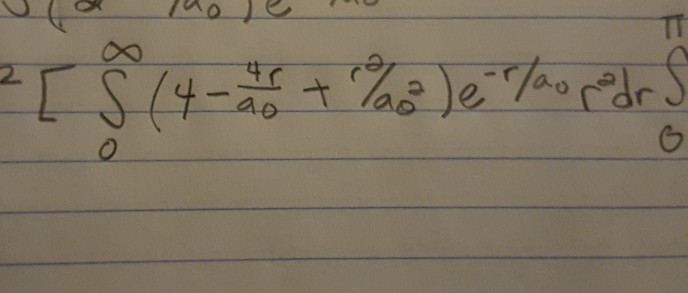 a₀ ) e
² [ ∫₀^∞ (4 - 4r/a₀ + r²/a₀²) e^(-r/a₀) r² dr ∫₀^π